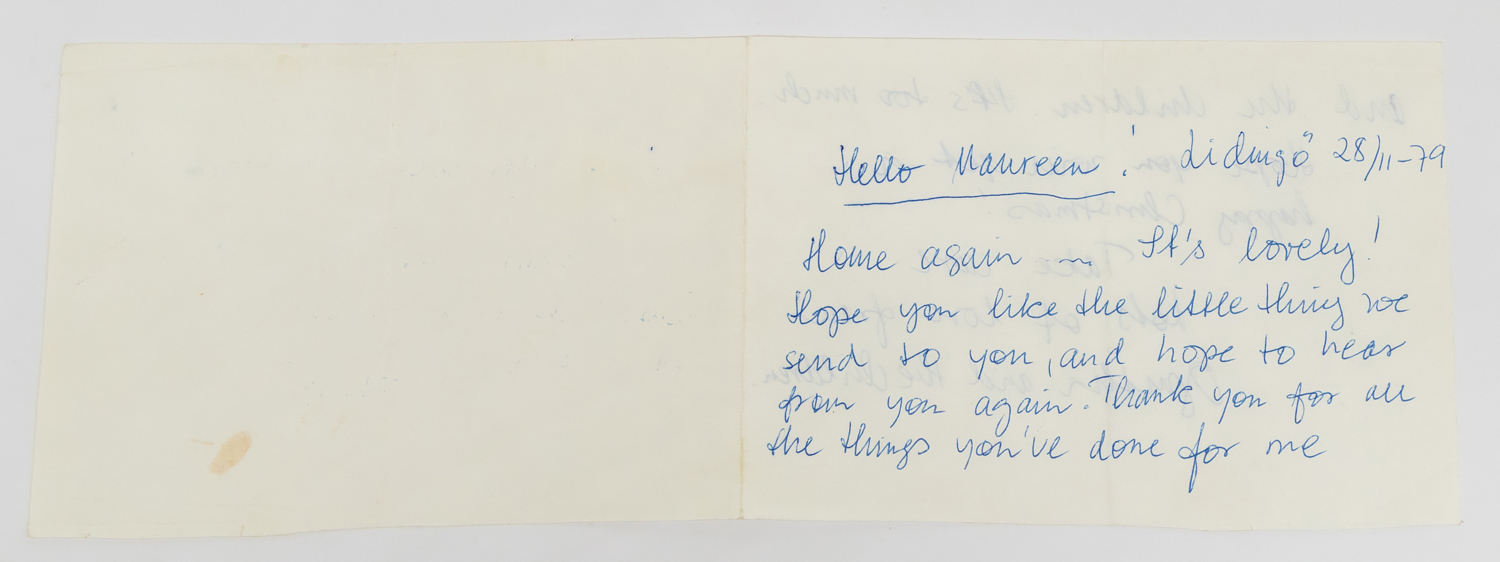 Hello Maureen! Lidingö 28/11-79
Home again ~ It's lovely!
Hope you like the little thing we
send to you, and hope to hear
from you again. Thank you for all
the things you've done for me